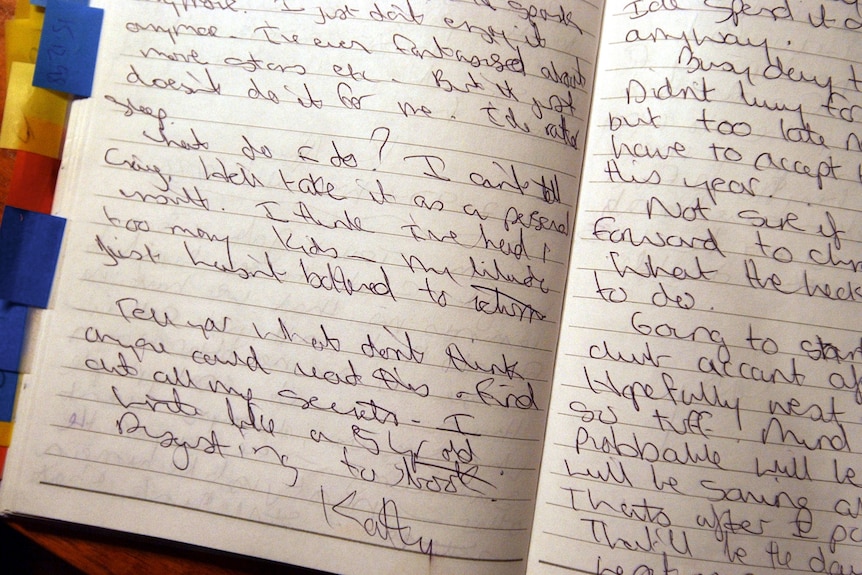 anymore. I just don't enjoy it
anymore. I've even fantasised about
more stars etc. But it just
doesn't do it for me. I'de rather
sleep.
What do I do? I can't tell
Craig, he'll take it as a personal
insult. I think I've had
too many kids - my libido
just hasn't bothered to return
Tell you what don't think
anyone could read this - find
out all my secrets - I
write like a 5 yr old
Disgusting to look.
Kathy
I'de spend it
anyway.
Busy day
Didn't
but too late
have to accept
this year.
Not sure if
forward to
What the heck
to do.
Going to start
club account
Hopefully next
so tuff. Mind
Probbable will be
will be saving
Thats after I
That'll be the day